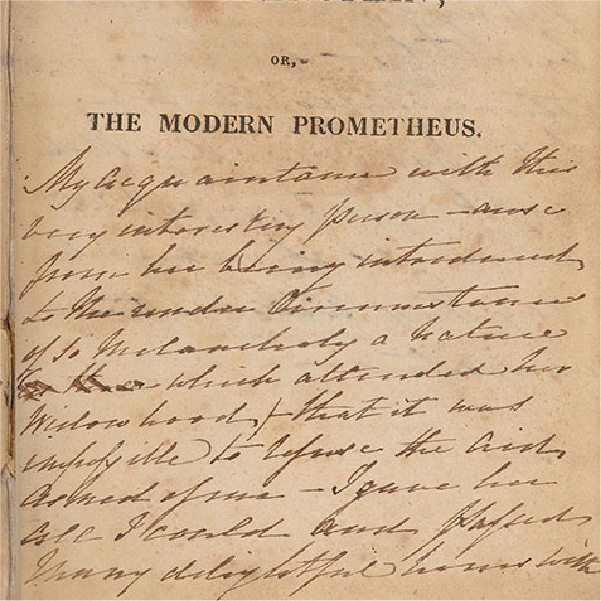 OR,
THE MODERN PROMETHEUS.
My acquaintance with this
very interesting person – arose
from her being introduced
to me under Circumstances
of so Melancholy a Nature
which attended her
Widowhood) that it was
impossible to refuse the aid
asked of me – I gave her
all I could and passed
Many delightful hours with